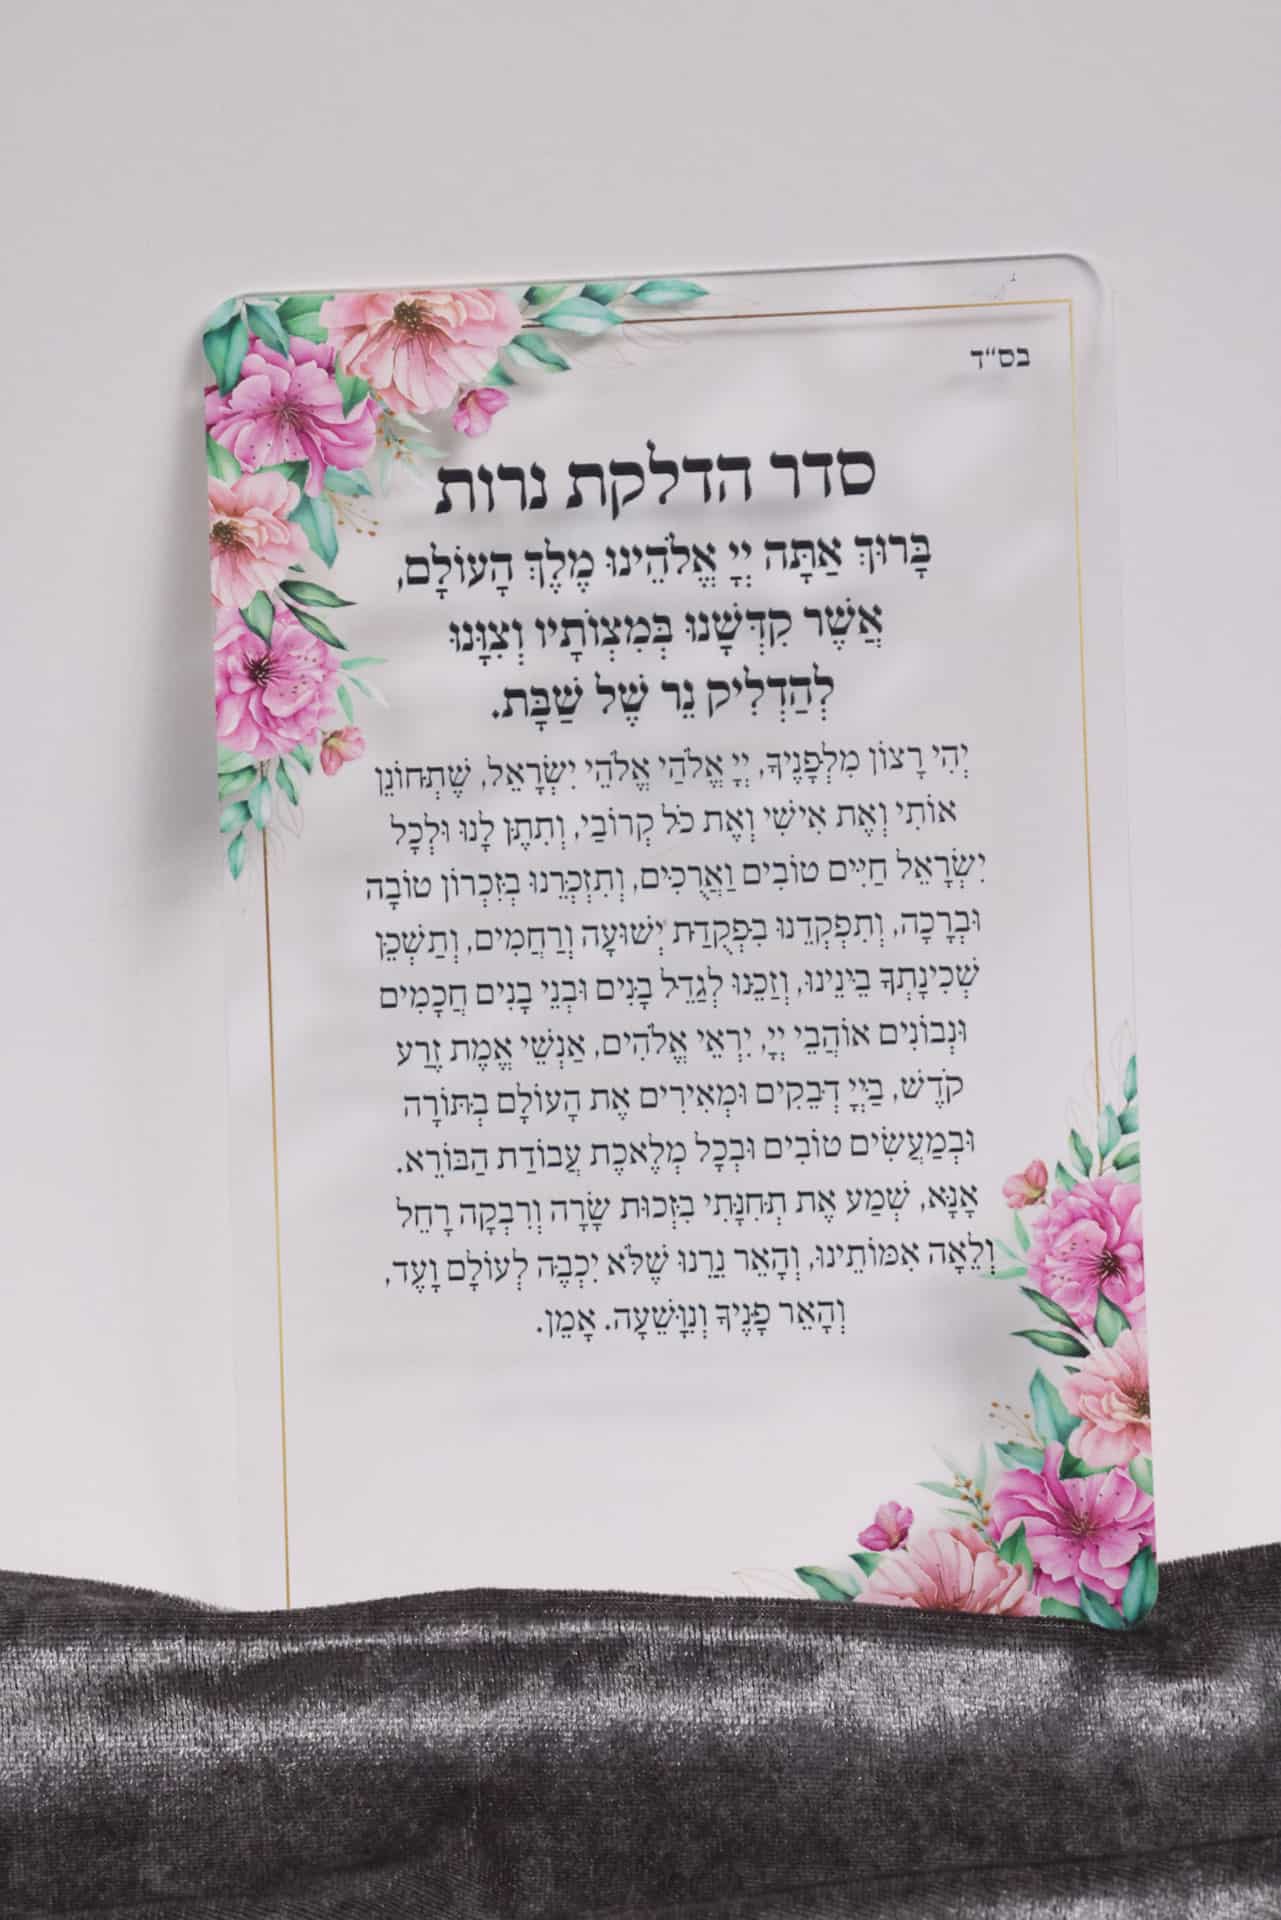 בס"ד
סדר הדלקת נרות
בָּרוּךְ אַתָּה יְיָ אֱלֹהֵינוּ מֶלֶךְ הָעוֹלָם,
אֲשֶׁר קִדְּשָׁנוּ בְּמִצְוֹתָיו וְצִוָּנוּ
לְהַדְלִיק נֵר שֶׁל שַׁבָּת.
יְהִי רָצוֹן מִלְפָנֶיךָ, יְיָ אֱלֹהַי אֱלֹהֵי יִשְׂרָאֵל, שֶׁתְּחוֹנֵן
אוֹתִי וְאֶת אִישִׁי וְאֶת כֹּל קְרוֹבַי, וְתִתֶּן לָנוּ וּלְכָל
יִשְׂרָאֵל חַיִּים טוֹבִים וַאֲרֻכִּים, וְתִזְכְּרֵנוּ בְּזִכְרוֹן טוֹבָה
וּבְרָכָה, וְתִפְקְדֵנוּ בִּפְקֻדַּת יְשׁוּעָה וְרַחֲמִים, וְתַשְׁכֵּן
שְׁכִינָתְךָ בֵּינֵינוּ, וְזַכֵּנוּ לְגַדֵּל בָּנִים וּבְנֵי בָנִים חֲכָמִים
וּנְבוֹנִים אוֹהֲבֵי יְיָ, יִרְאֵי אֱלֹהִים, אַנְשֵׁי אֱמֶת זֶרַע
קֹדֶשׁ, בַּיְיָ דְּבֵקִים וּמְאִירִים אֶת הָעוֹלָם בְּתוֹרָה
וּבְמַעֲשִׂים טוֹבִים וּבְכָל מְלֶאכֶת עֲבוֹדַת הַבּוֹרֵא.
אָנָּא, שְׁמַע אֶת תְּחִנָּתִי בִּזְכוּת שָׂרָה וְרִבְקָה רָחֵל
וְלֵאָה אִמּוֹתֵינוּ, וְהָאֵר נֵרֵנוּ שֶׁלֹּא יִכְבֶּה לְעוֹלָם וָעֶד,
וְהָאֵר פָּנֶיךָ וְנִוָּשֵׁעָה. אָמֵן.